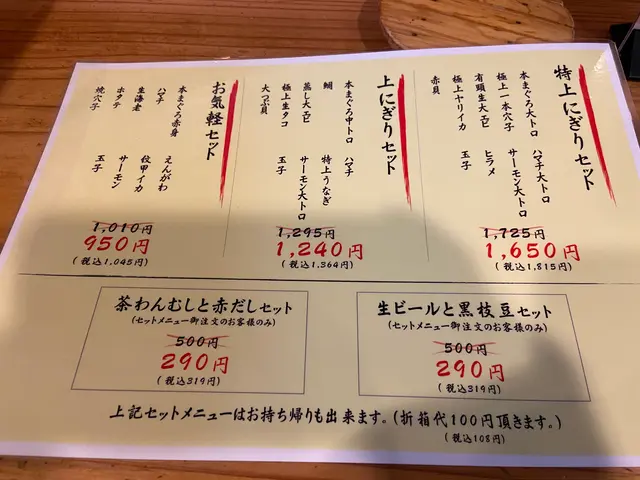 特上にぎりセット
本まぐろ大トロ
ハマチ大トロ
極上一本穴子
サーモン大トロ
有頭生大エビ
ヒラメ
極上ヤリイカ
玉子
赤貝
1,725円
1,650円
(税込1,815円)
上にぎりセット
本まぐろ中トロ
ハマチ
鯛
特上うなぎ
蒸し大エビ
サーモン大トロ
極上生タコ
玉子
大つぶ貝
1,295円
1,240円
(税込1,364円)
お気軽セット
本まぐろ赤身
えんがわ
ハマチ
紋甲イカ
生海老
サーモン
ホタテ
玉子
焼穴子
1,010円
950円
(税込1,045円)
茶わんむしと赤だしセット
(セットメニュー御注文のお客様のみ)
500円
290円
(税込319円)
生ビールと黒枝豆セット
(セットメニュー御注文のお客様のみ)
500円
290円
(税込319円)
上記セットメニューはお持ち帰りも出来ます。(折箱代100円頂きます。)
(税込108円)